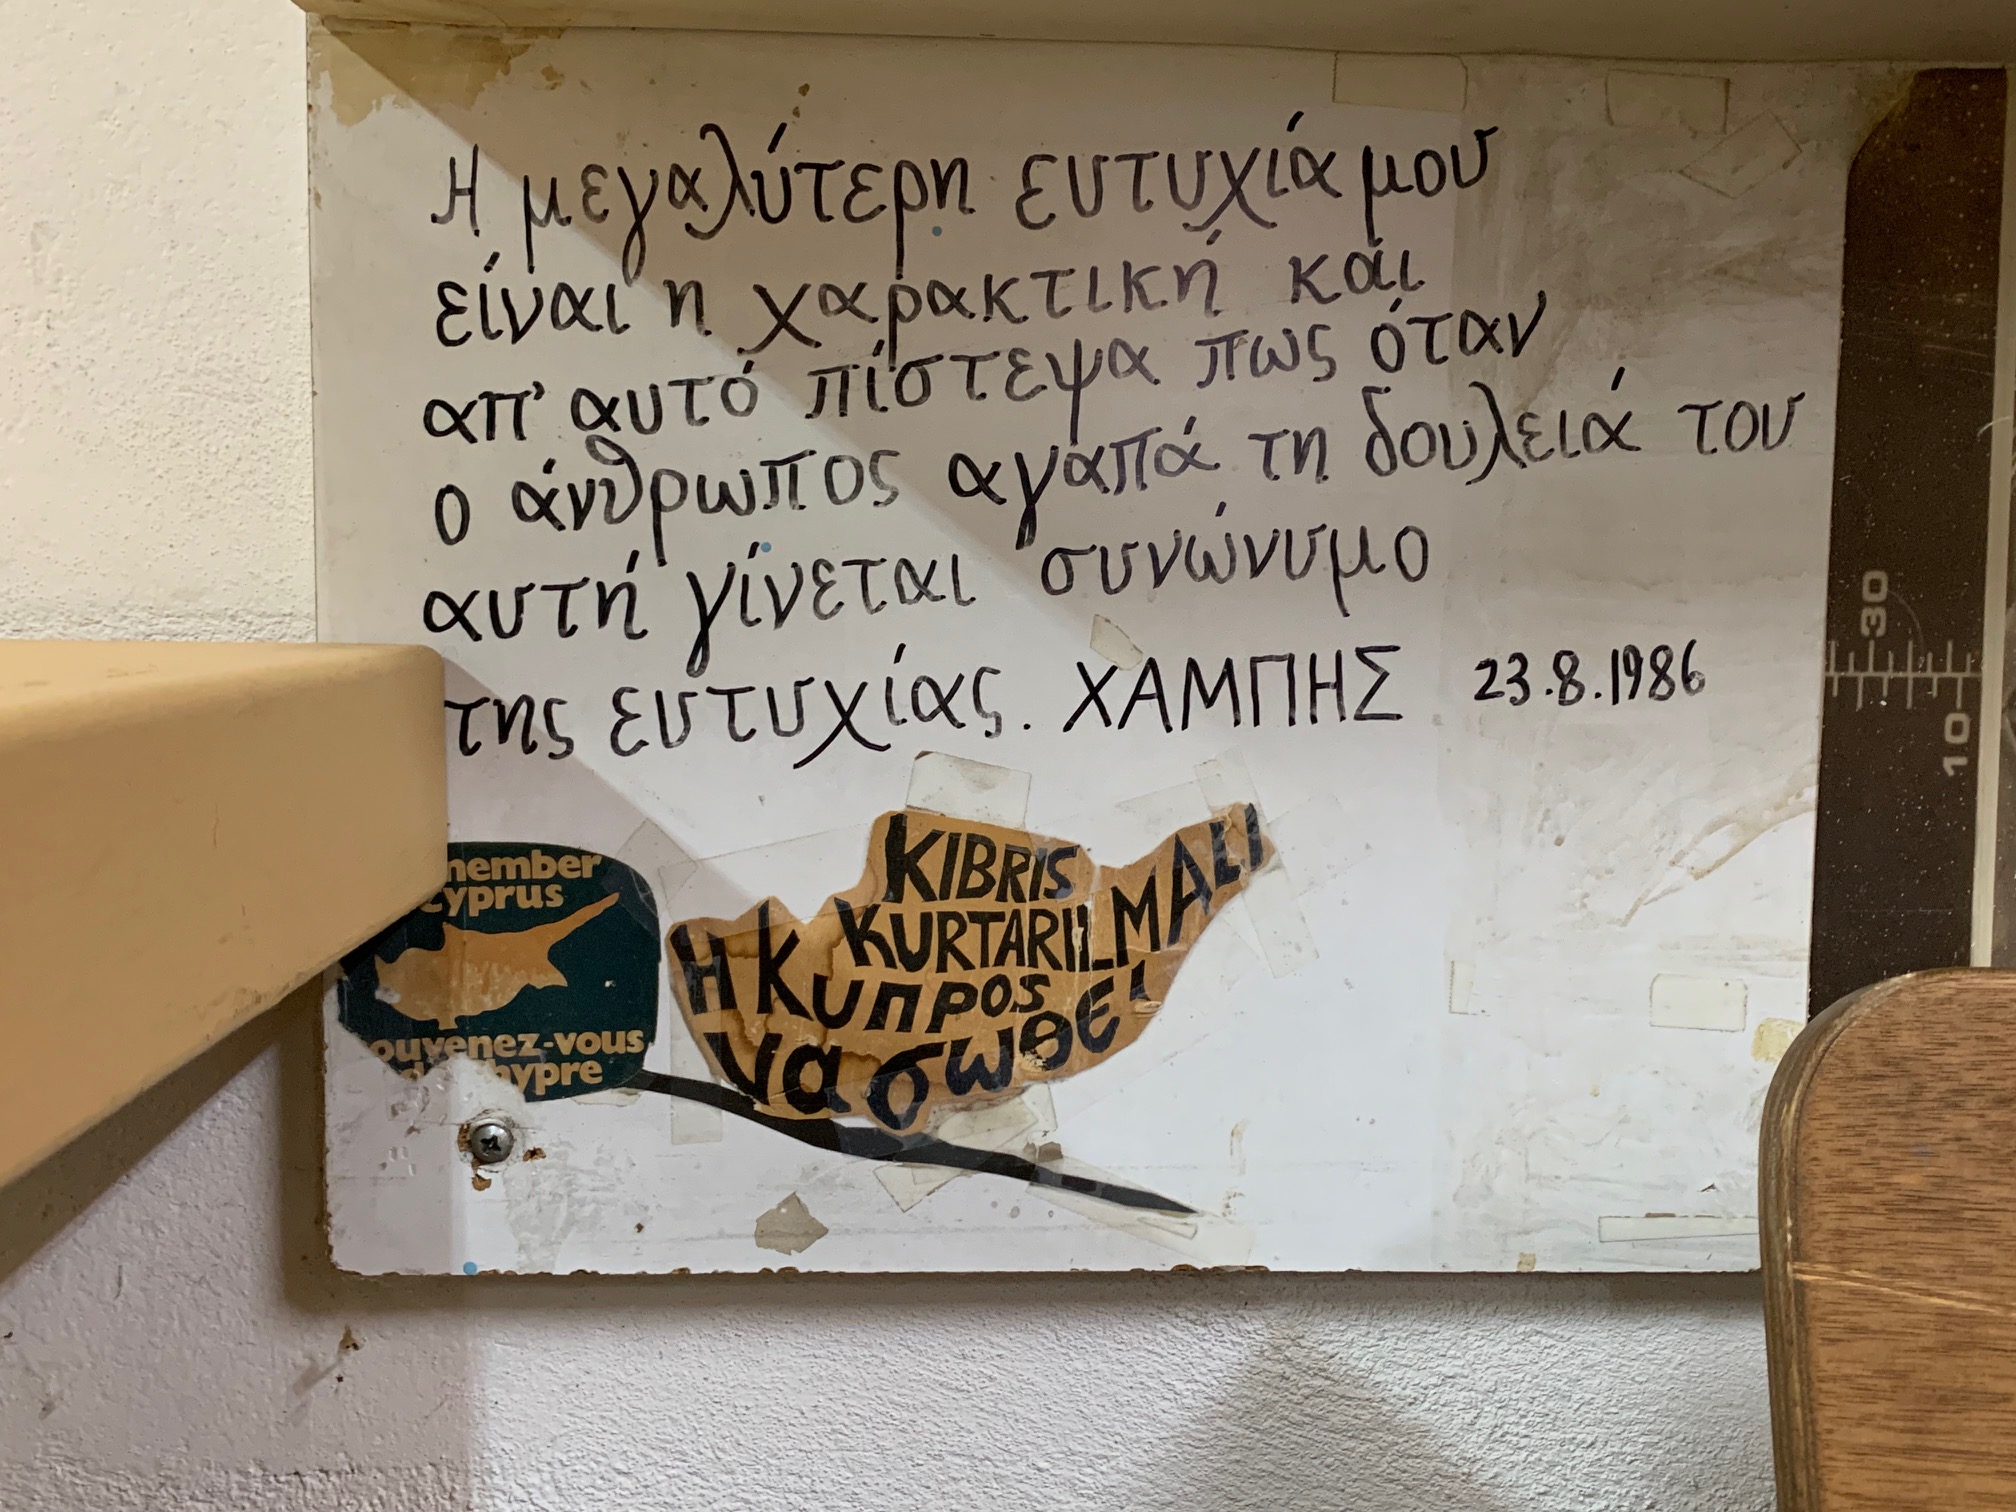 Η μεγαλύτερη ευτυχία μου
είναι η χαρακτική και
απ' αυτό πίστεψα πως όταν
ο άνθρωπος αγαπά τη δουλειά του
αυτή γίνεται συνώνυμο
της ευτυχίας. ΧΑΜΠΗΣ 23.8.1986
member
cyprus
ouvenez-vous
hypre
KIBRIS
KURTARILMALI
Η ΚυπΡΟΣ
να σωθεί
30
10